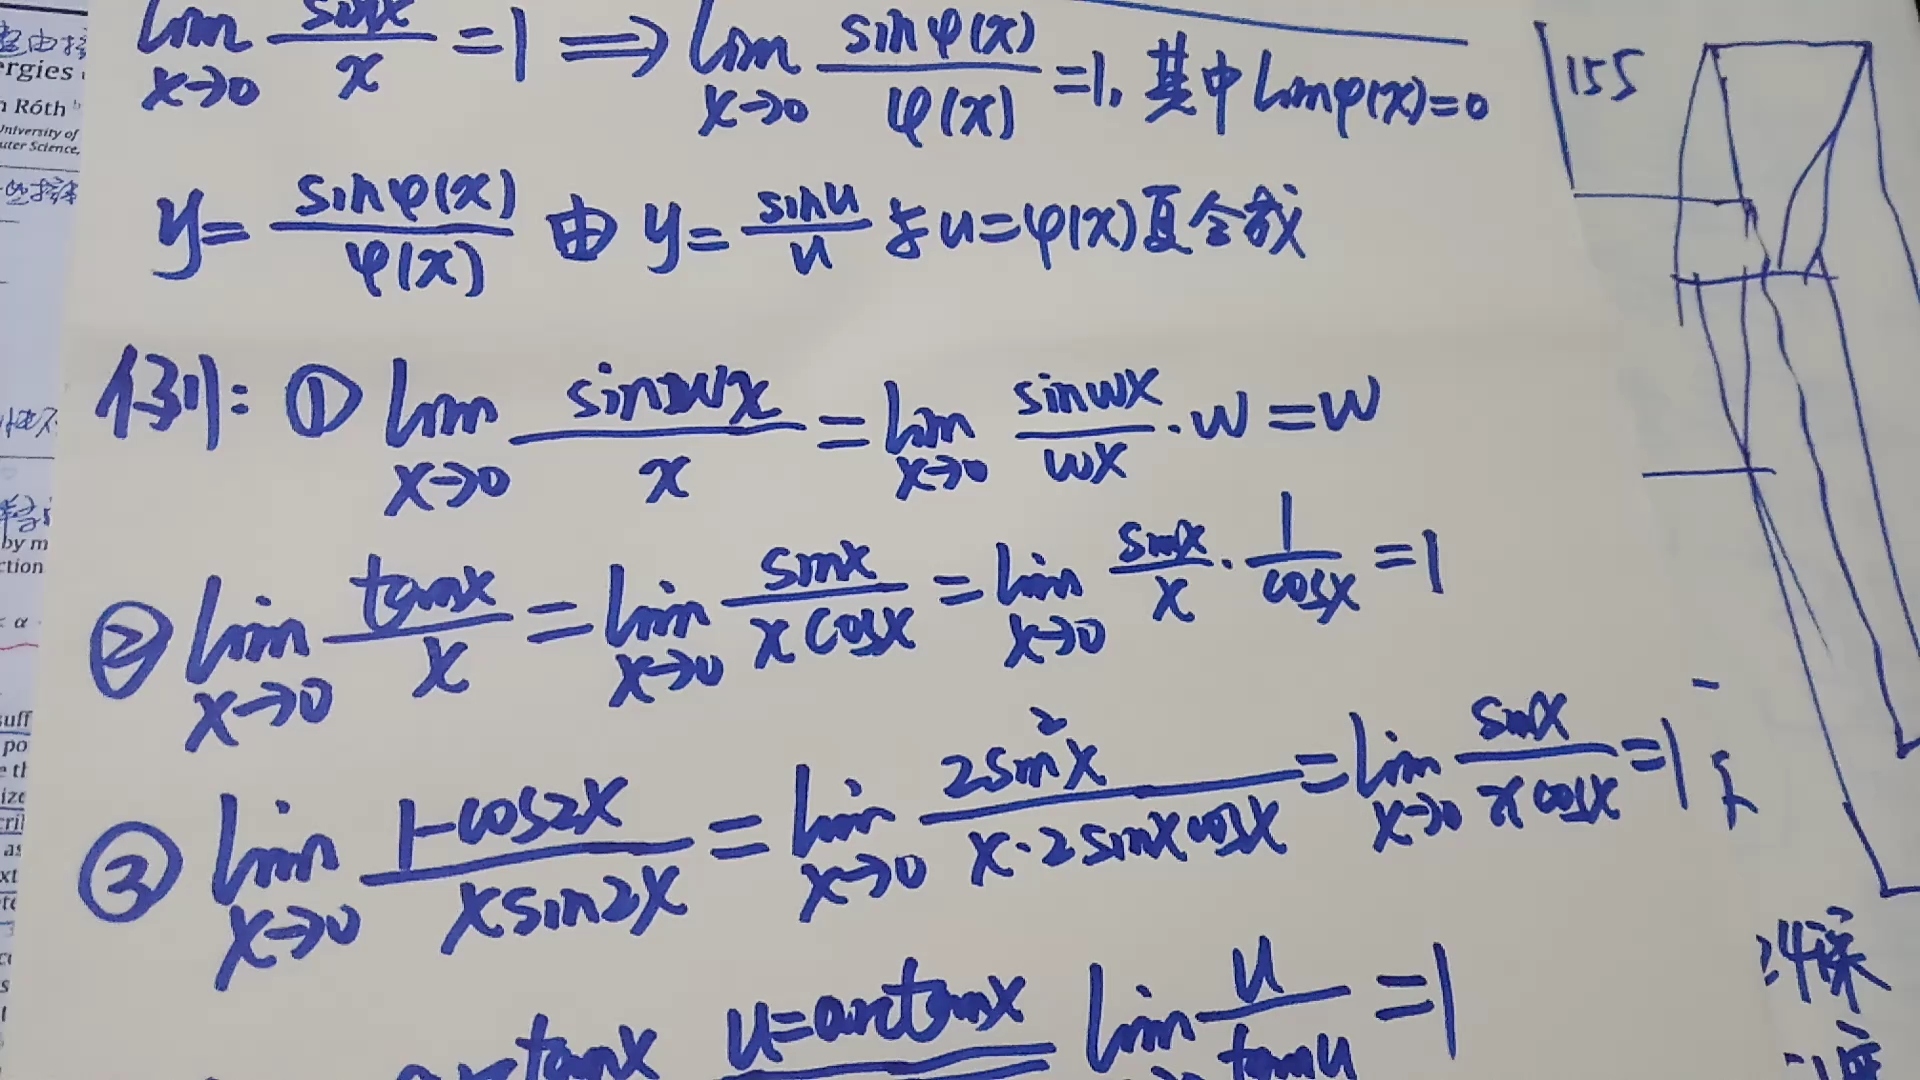 lim x→0 sinx/x =1 ⟹ lim x→0 sinφ(x)/φ(x) =1, 其中limφ(x)=0
y= sinφ(x)/φ(x) 由 y= sinu/u 与u=φ(x)复合成
例: ① lim x→0 sinwx/x = lim x→0 sinwx/wx ·w =w
② lim x→0 tanx/x = lim x→0 sinx/xcosx = lim x→0 sinx/x · 1/cosx =1
③ lim x→0 1-cos2x/xsin2x = lim x→0 2sin²x/x·2sinxcosx = lim x→0 sinx/xcosx =1
arctanx u=arctanx lim u/tanu =1
155
ergies
n Róth b
University of
uter Science,
by m
ction
α
suff
po
e th
ize
cril
as
xt